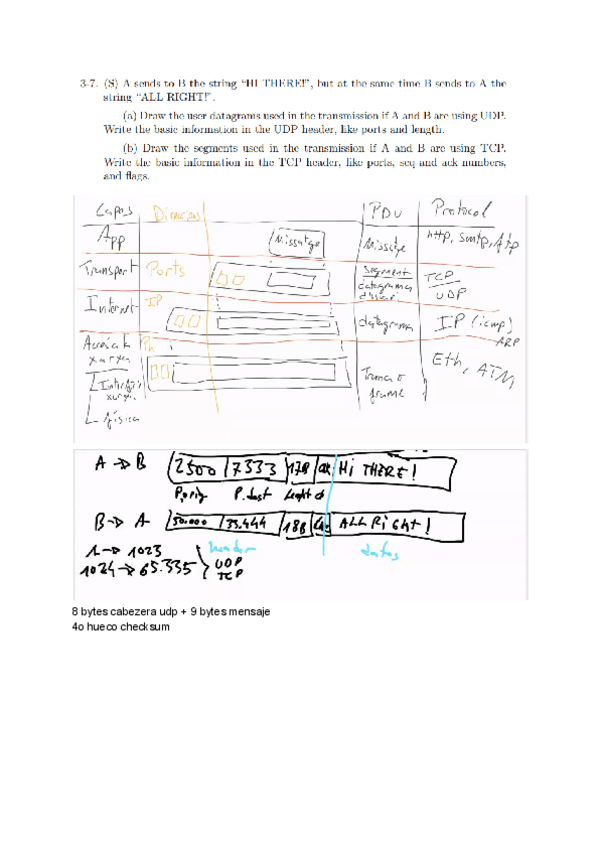 3-7. (S) A sends to B the string “HI THERE!”, but at the same time B sends to A the
string “ALL RIGHT!”.
(a) Draw the user datagrams used in the transmission if A and B are using UDP.
Write the basic information in the UDP header, like ports and length.
(b) Draw the segments used in the transmission if A and B are using TCP.
Write the basic information in the TCP header, like ports, seq and ack numbers,
and flags.
Capas PDU Protocol
App Missatge Missatge http, smtp, ftp
Transport Ports Segment TCP
datagrama UDP
Internet IP datagrama IP (icmp)
ARP
xarxa Eth, ATM
Trama o
frame
xarxa
física
A → B 2500 7333 17B HI THERE!
P.orig P.dest
B → A 50.000 33.444 18B ALL RIGHT!
1 → 1023 header datos
1024 → 65.335 UDP
TCP
8 bytes cabezera udp + 9 bytes mensaje
4o hueco checksum